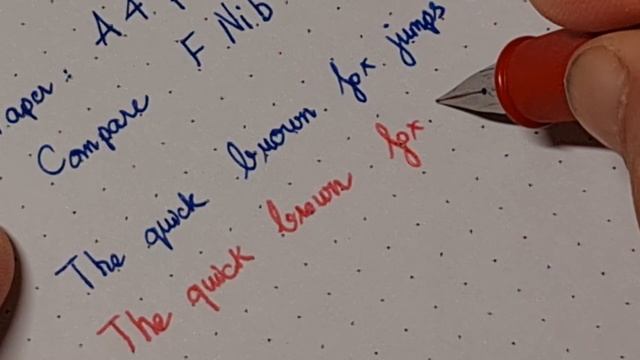 A4
Compare F Nib
The quick brown fox jumps
The quick brown fox